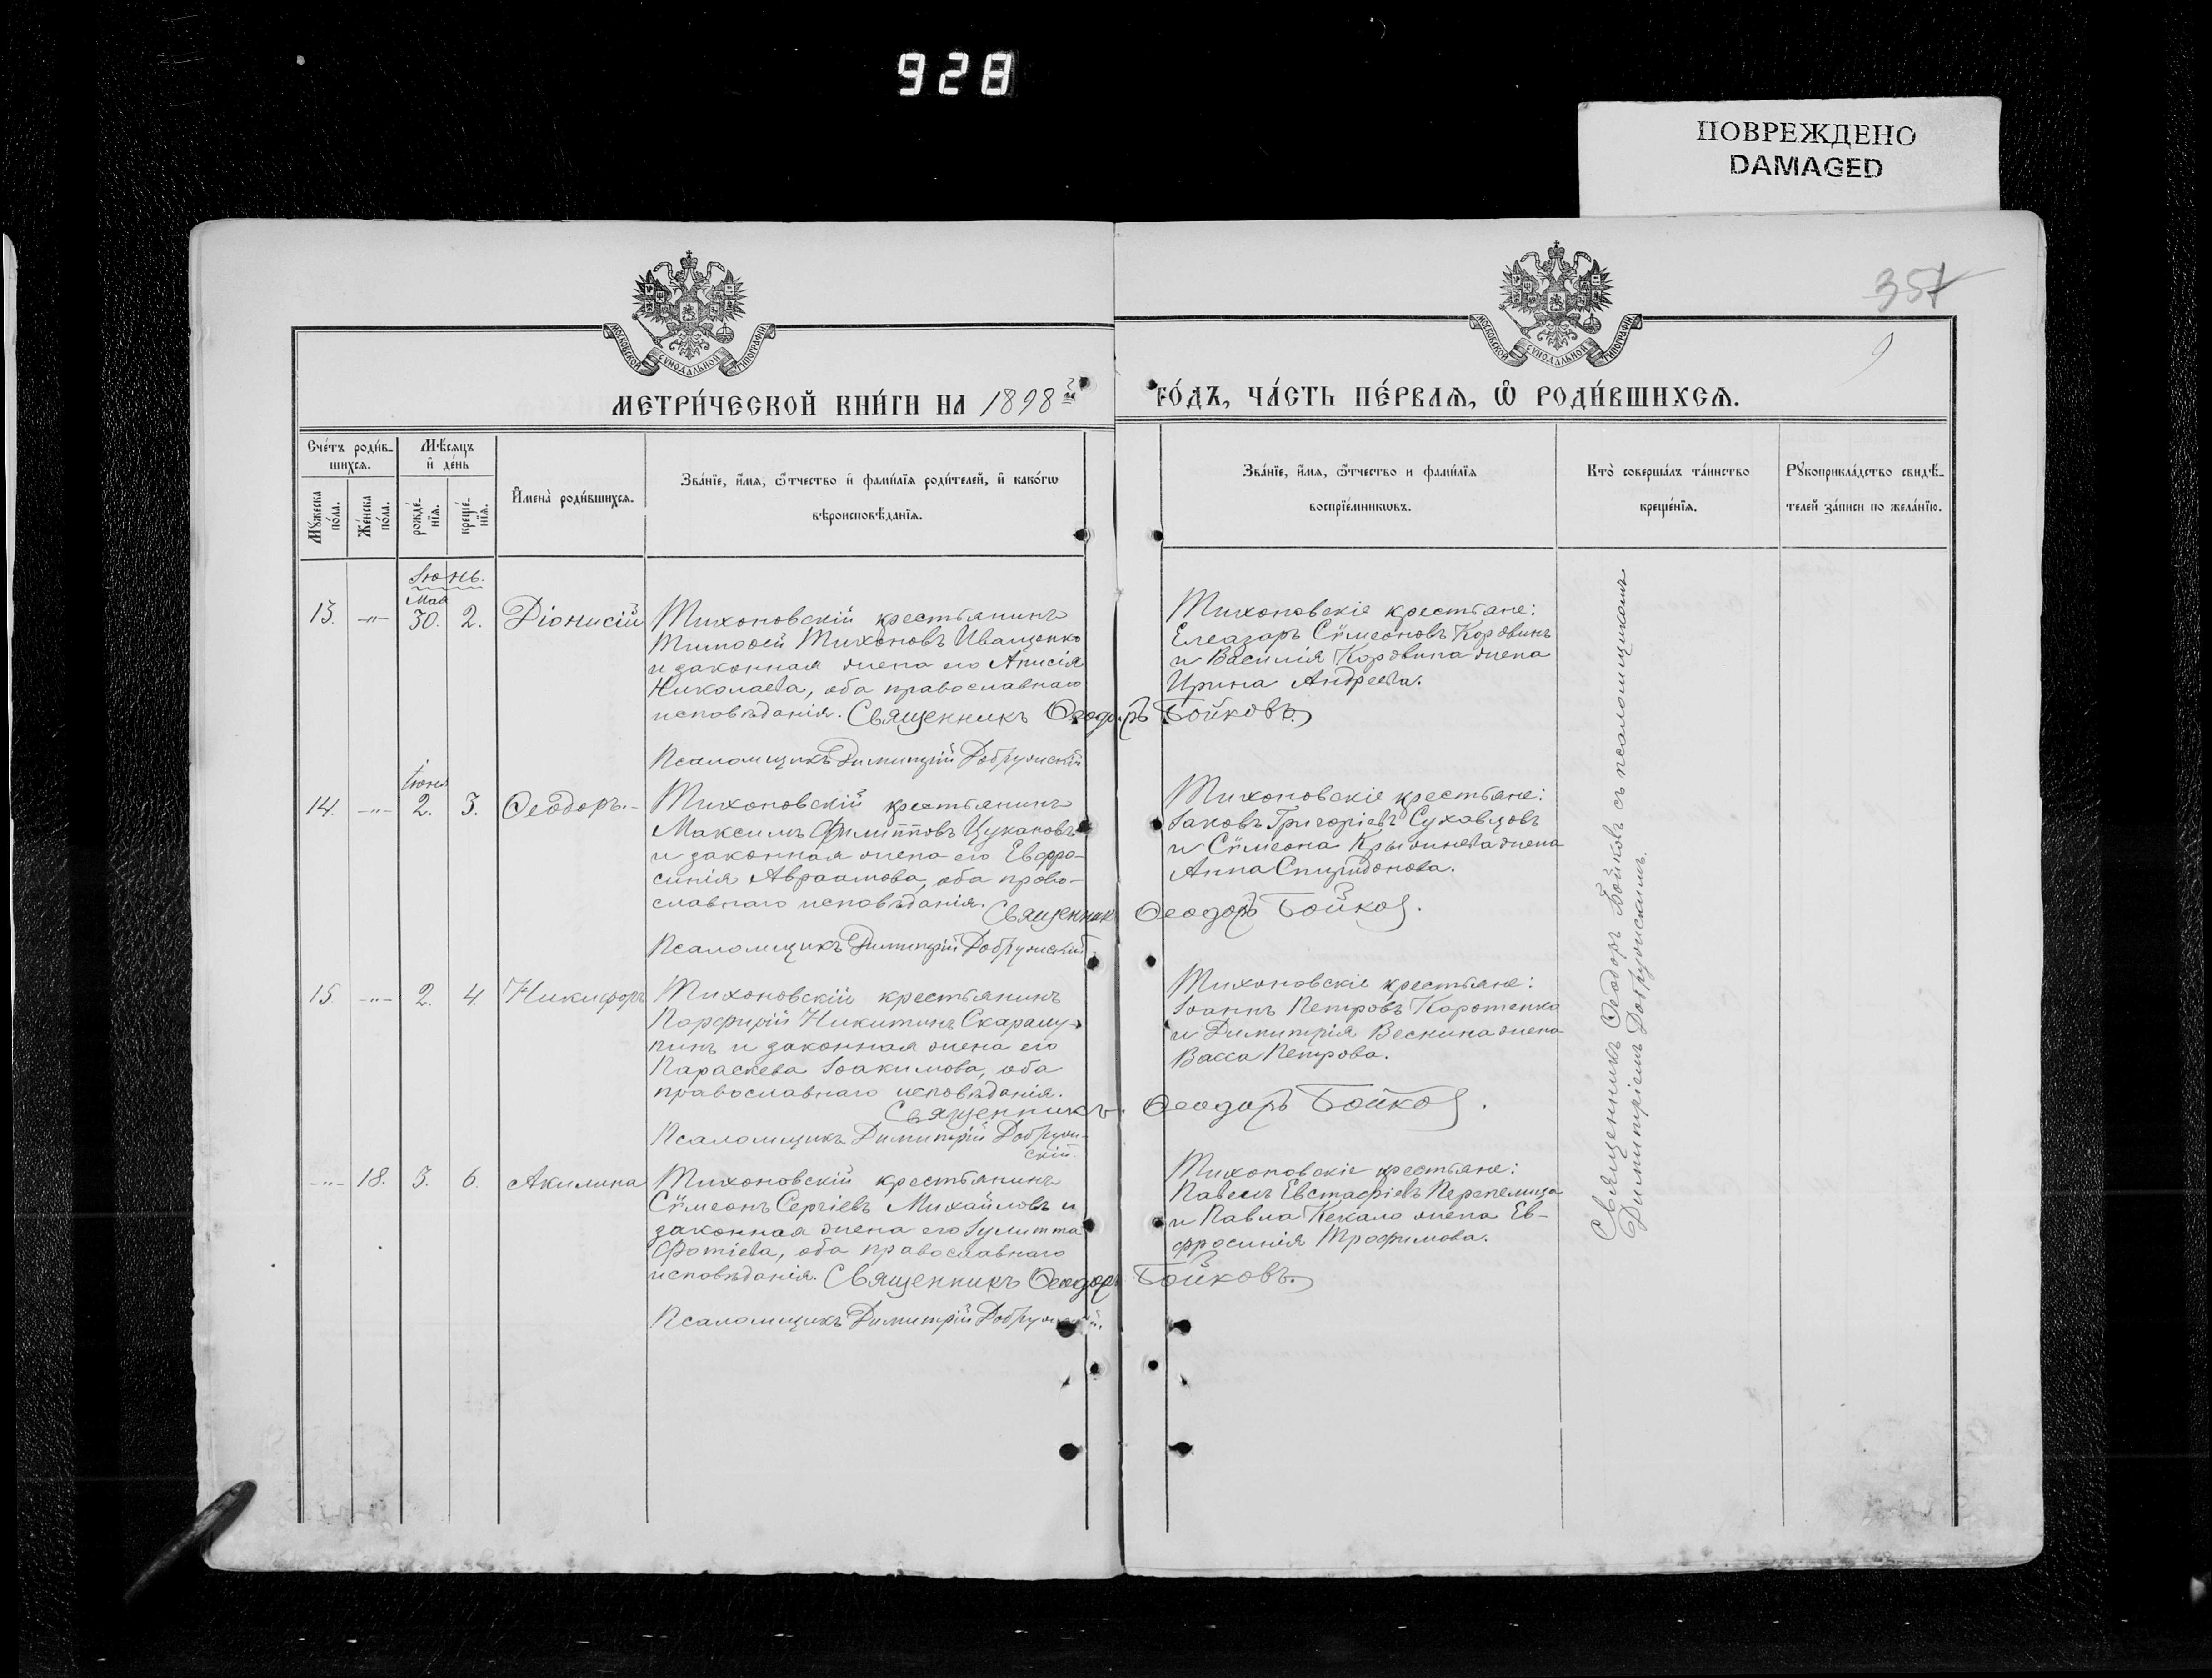 928
ПОВРЕЖДЕНО
DAMAGED
МОСКОВСКОЙ СѴНОДАЛЬНОЙ ТИПОГРАФІИ
МОСКОВСКОЙ СѴНОДАЛЬНОЙ ТИПОГРАФІИ
357
9
МЕТРИ́ЧЕСКОЙ КНИ́ГИ НА 1898 й
ГО́ДЪ, ЧА́СТЬ ПЕ́РВАѦ, Ѡ҆ РОДИ́ВШИХСѦ.
Сче́тъ роди́в-
шихсѧ.
Мѣ́сѧцъ
и҆ де́нь
Мꙋ́жеска
по́ла.
Же́нска
по́ла.
рожде́-
нїѧ.
креще́-
нїѧ.
И҆мена̀ роди́вшихсѧ.
Зва́нїе, и҆́мѧ, ѻ҆́тчество и҆ фами́лїѧ роди́телей, и҆ како́гѡ
вѣроисповѣ́данїѧ.
Зва́нїе, и҆́мѧ, ѻ҆́тчество и фами́лїѧ
воспрїе́мникѡвъ.
Кто̀ соверша́лъ та́инство
креще́нїѧ.
Рꙋкоприкла́дство свидѣ́-
телей за́писи по жела́нїю.
Іюнь.
Мая
13. -"- 30. 2. Діонисій
Тихоновскій крестьянинъ
Тимоѳей Тихоновъ Иващенко
и законная жена его Анисія
Николаева, оба православнаго
исповѣданія. Священникъ Ѳеодоръ Бойковъ.
Псаломщикъ Димитрій Добружскій
Тихоновскіе крестьяне:
Елеазаръ Сѵмеоновъ Коровинъ
и Василія Коровина жена
Ирина Андреева.
Іюня
14. -"- 2. 3. Ѳеодоръ.
Тихоновскій крестьянинъ
Максимъ Филипповъ Цукановъ
и законная жена его Евфро-
синія Авраамова, оба право-
славнаго исповѣданія.
Священник Ѳеодоръ Бойков.
Псаломщикъ Димитрій Добружскій
Тихоновскіе крестьяне:
Іаковъ Григоріевъ Суховцовъ
и Сѵмеона жена
Анна Спиридонова.
15 -"- 2. 4 Никифоръ
Тихоновскій крестьянинъ
Порфирій Никитинъ Скараму-
пинъ и законная жена его
Параскева Іоакимова, оба
православнаго исповѣданія.
Священникъ. Ѳеодоръ Бойков.
Псаломщикъ Димитрій Добруж-
скій
Тихоновскіе крестьяне:
Іоаннъ Петровъ Коротенко
и Димитрія Веснина жена
Васса Петрова.
-"- 18. 3. 6. Акилина
Тихоновскій крестьянинъ
Сѵмеонъ Сергіевъ Михайловъ и
законная жена его Іулитта
Фотіева, оба православнаго
исповѣданія. Священникъ Ѳеодоръ Бойковъ.
Псаломщикъ Димитрій Добружскій.
Тихоновскіе крестьяне:
Павелъ Евстафіевъ Перепелица
и Павла Кекало жена Ев-
фросинія Трофимова.
Священникъ Ѳеодоръ Бойковъ съ псаломщикомъ
Димитріемъ Добружскимъ.